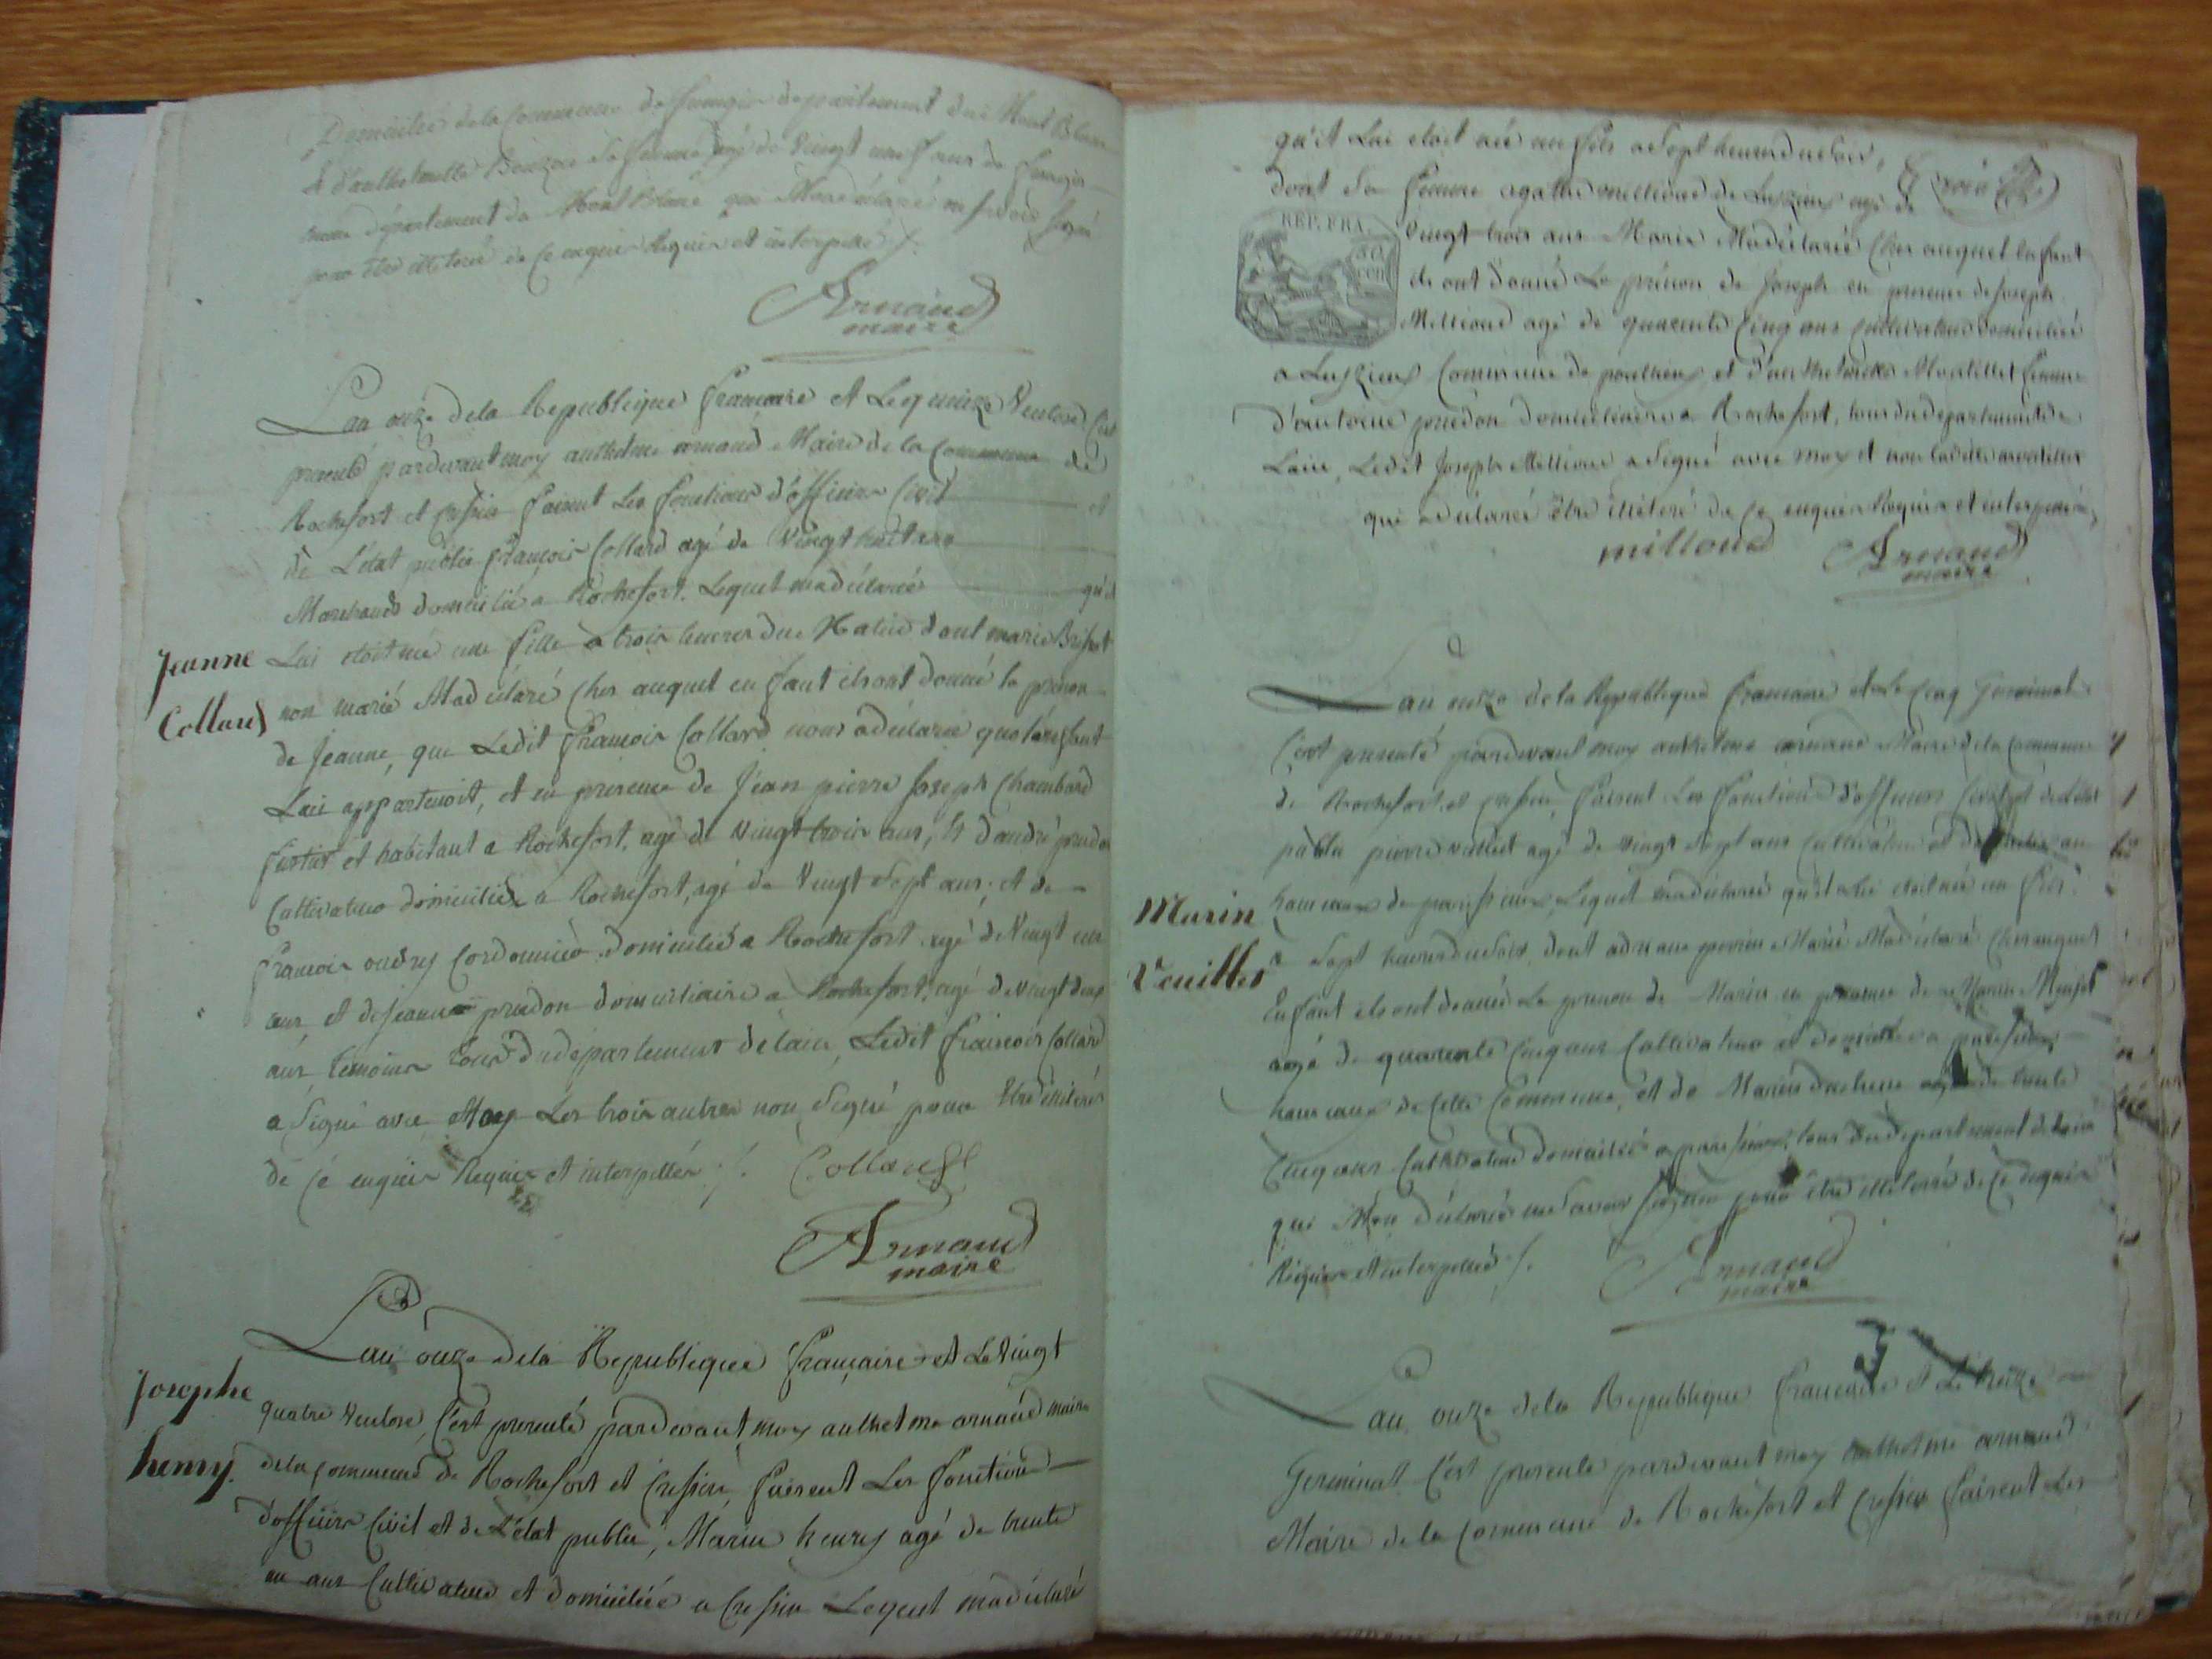 Domiciliés de la Commune de departement du Mont Blanc
et d'anthelmette de femme agé de vingt ans de
département du Mont Blanc qui Mon déclaré ne savoir signé
pour être illeteré de ce enquis Requis et interpellés ./.
Arnaud
maire
L'an onze de la Republique francaise et Le quinze Ventose C'est
presenté pardevant moy anthelme arnaud Maire de la Commune de
Rochefort et Cressin faisant Les fonctions d'officier Civil et
de L'état public françois Collard agé de Vingt huit ans
Marchand domicilié a Rochefort. Lequel ma déclaré qu'il
Jeanne
Collard
Lui etoit née une fille a trois heures du Matin dont marie
non marié Ma déclaré Cher auquel enfant ils ont donné le prenom
de Jeanne, que Ledit françois Collard nous a déclaré que Lenfant
Lui appartenoit, et en presence de Jean pierre Joseph Chambard
et habitant a Rochefort, agé de vingt trois ans, et d'andré prudon
Cultivateur domicilié a Rochefort, agé de Vingt sept ans, et de
françois Cordonnier domicilié a Rochefort agé de Vingt un
ans, et de Jeanne prudon domiciliaire a Rochefort, agé de vingt deux
ans temoins tous du departement de lain, Ledit françois Collard
a Signé avec Moy Les trois autres non Signé pour être illeterés
de ce enquis Requis et interpellés ./. Collard
Arnaud
maire
Josephe
henry.
L'an onze de la Republique française et Le Vingt
quatre Ventose, C'est presenté pardevant moy anthelme arnaud maire
de la commune de Rochefort et Cressin, faisant Les fonctions
d'officier Civil et de L'état public, Marin henry agé de trente
un ans Cultivateur et domicilié a Cressin Lequel ma déclaré
qu'il Lui etoit née un fils a Sept heures du Soir,
dont Sa femme agathe millioud de agé de
REP. FRA.
Vingt trois ans Marié Ma déclaré Cher auquel Enfant
ils ont donné Le prénom de Joseph en presence de Joseph
Millioud agé de quarente Cinq ans Cultivateur domicilié
a Commune de et d'anthelmette Montillet femme
d'antoine prudon domiciliaire a Rochefort, tous du departement de
Lain, Ledit Joseph Millioud a Signé avec moy et non Ladite montillet
qui a déclaré être illeteré de ce enquis Requis et interpellé,
milloud Arnaud
maire
L'an onze de la Republique francaise et Le Cinq Germinal
C'est presenté pardevant moy anthelme arnaud Maire de la Commune
de Rochefort et Cressin, faisant Les fonctions d'officier Civil et de L'état
public pierre agé de vingt sept ans Cultivateur et au
Marin
Veuillet
hameaux de Lequel ma déclaré qu'il Lui etoit née un fils
a Sept heures du Soir, dont Marié Ma déclaré Cher auquel
Enfant ils ont donné Le prenom de Marin en presence de Marin
agé de quarente Cinq ans Cultivateur et domicilié a
hameaux de Cette Commune, et de Marin agé de trente
Cinq ans Cultivateur domicilié a tous du departement de Lain
qui Mon déclaré ne Savoir Signer pour être illeterré de ce enquis
Requis et interpellés ./.
Arnaud
maire
L'an onze de la Republique francaise et Le treize
Germinal C'est presenté pardevant moy anthelme arnaud
Maire de la Commune de Rochefort et Cressin faisant Les